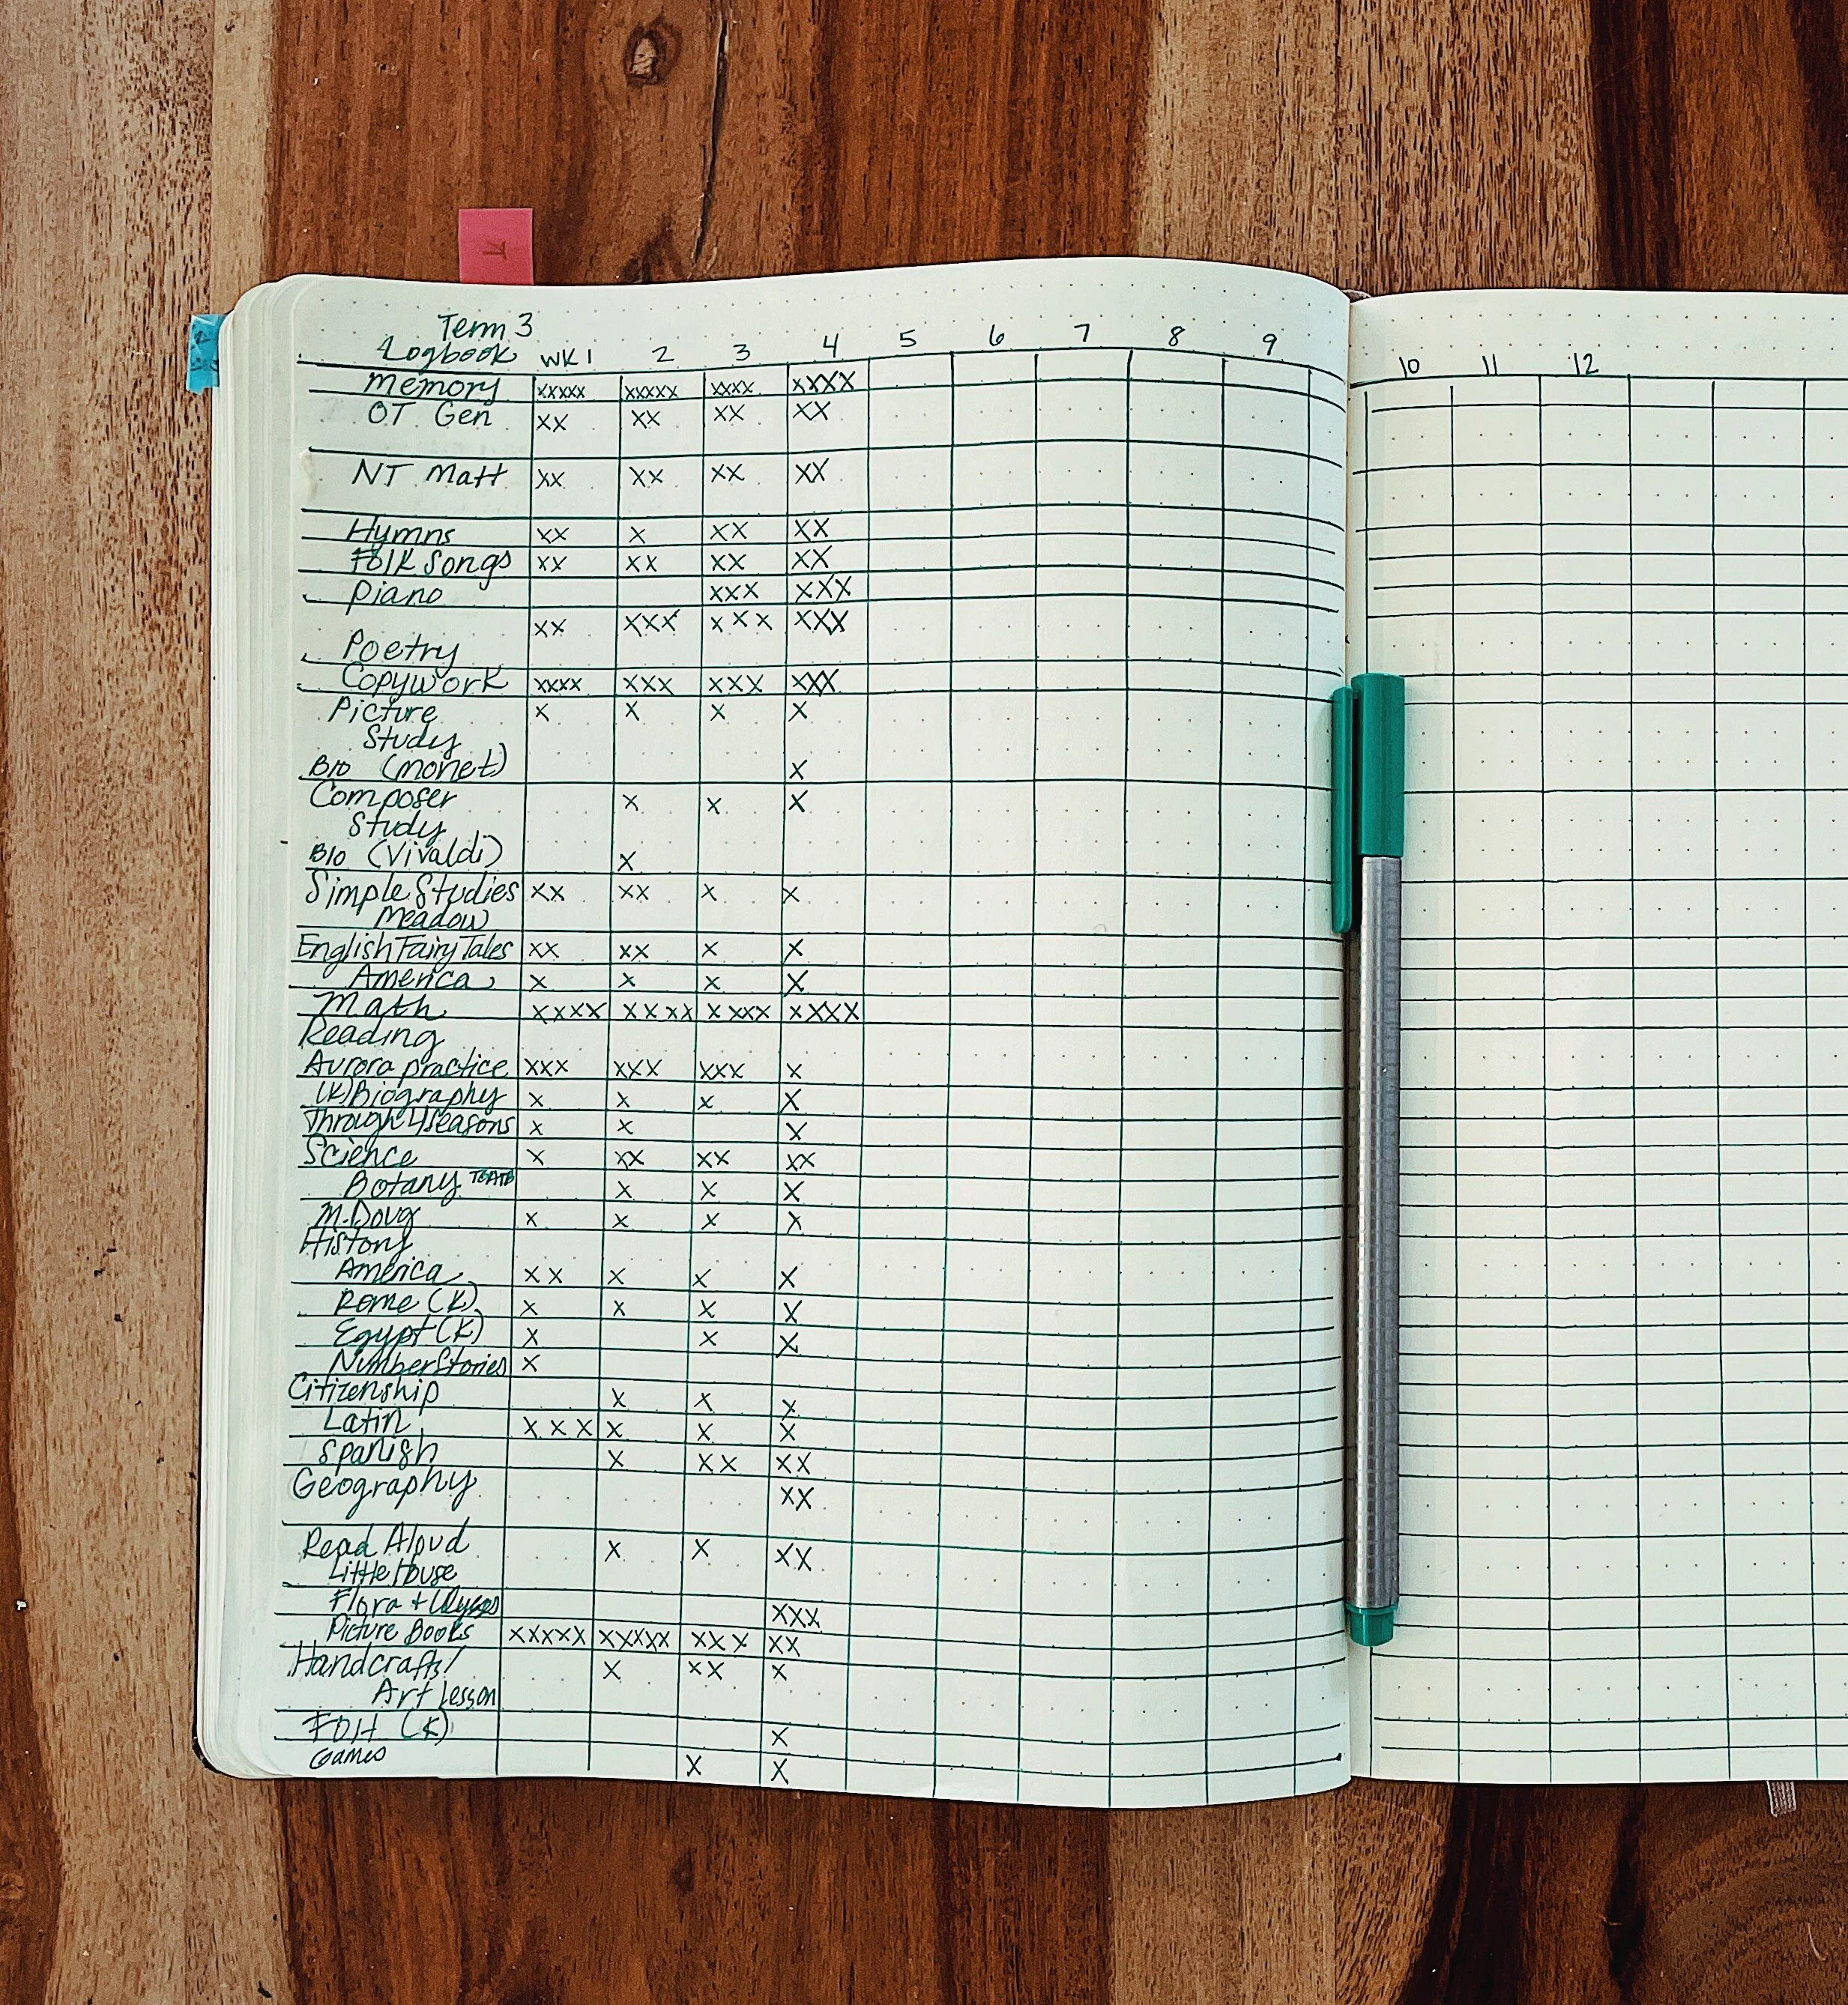 Term 3
Logbook WK 1 2 3 4 5 6 7 8 9 10 11 12
Memory xxxxx xxxxx xxxx xxxx
OT Gen xx xx xx xx
NT Matt xx xx xx xx
Hymns xx x xx xx
Folk Songs xx xx xx xx
Piano xxx xxx
Poetry xx xxx xxx xxx
Copywork xxxx xxx xxx xxx
Picture x x x x
Study
Bio (Monet) x
Composer x x x
Study
Bio (Vivaldi) x
Simple Studies xx xx x x
Meadow
English Fairy Tales xx xx x x
America x x x x
Math xxxx xxxx xxxx xxxx
Reading
Aurora practice xxx xxx xxx x
(K) Biography x x x x
Through 4 Seasons x x x
Science x xx xx xx
Botany x x x
M. Doug x x x x
History
America xx x x x
Rome (K) x x x x
Egypt (K) x x x
Number Stories x
Citizenship x x x
Latin xxx x x x
Spanish x xx xx
Geography xx
Read Aloud x x xx
Little House
Flora + Ulysses xxx
Picture Books xxxxx xxxxx xxx xx
Handcrafts/ x xx x
Art Lesson
(K) x
Games x x